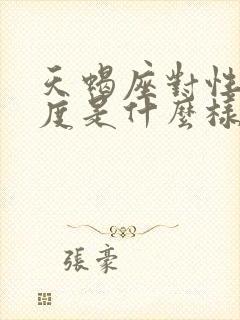 天蠍座對性
度是什麼樣
張豪